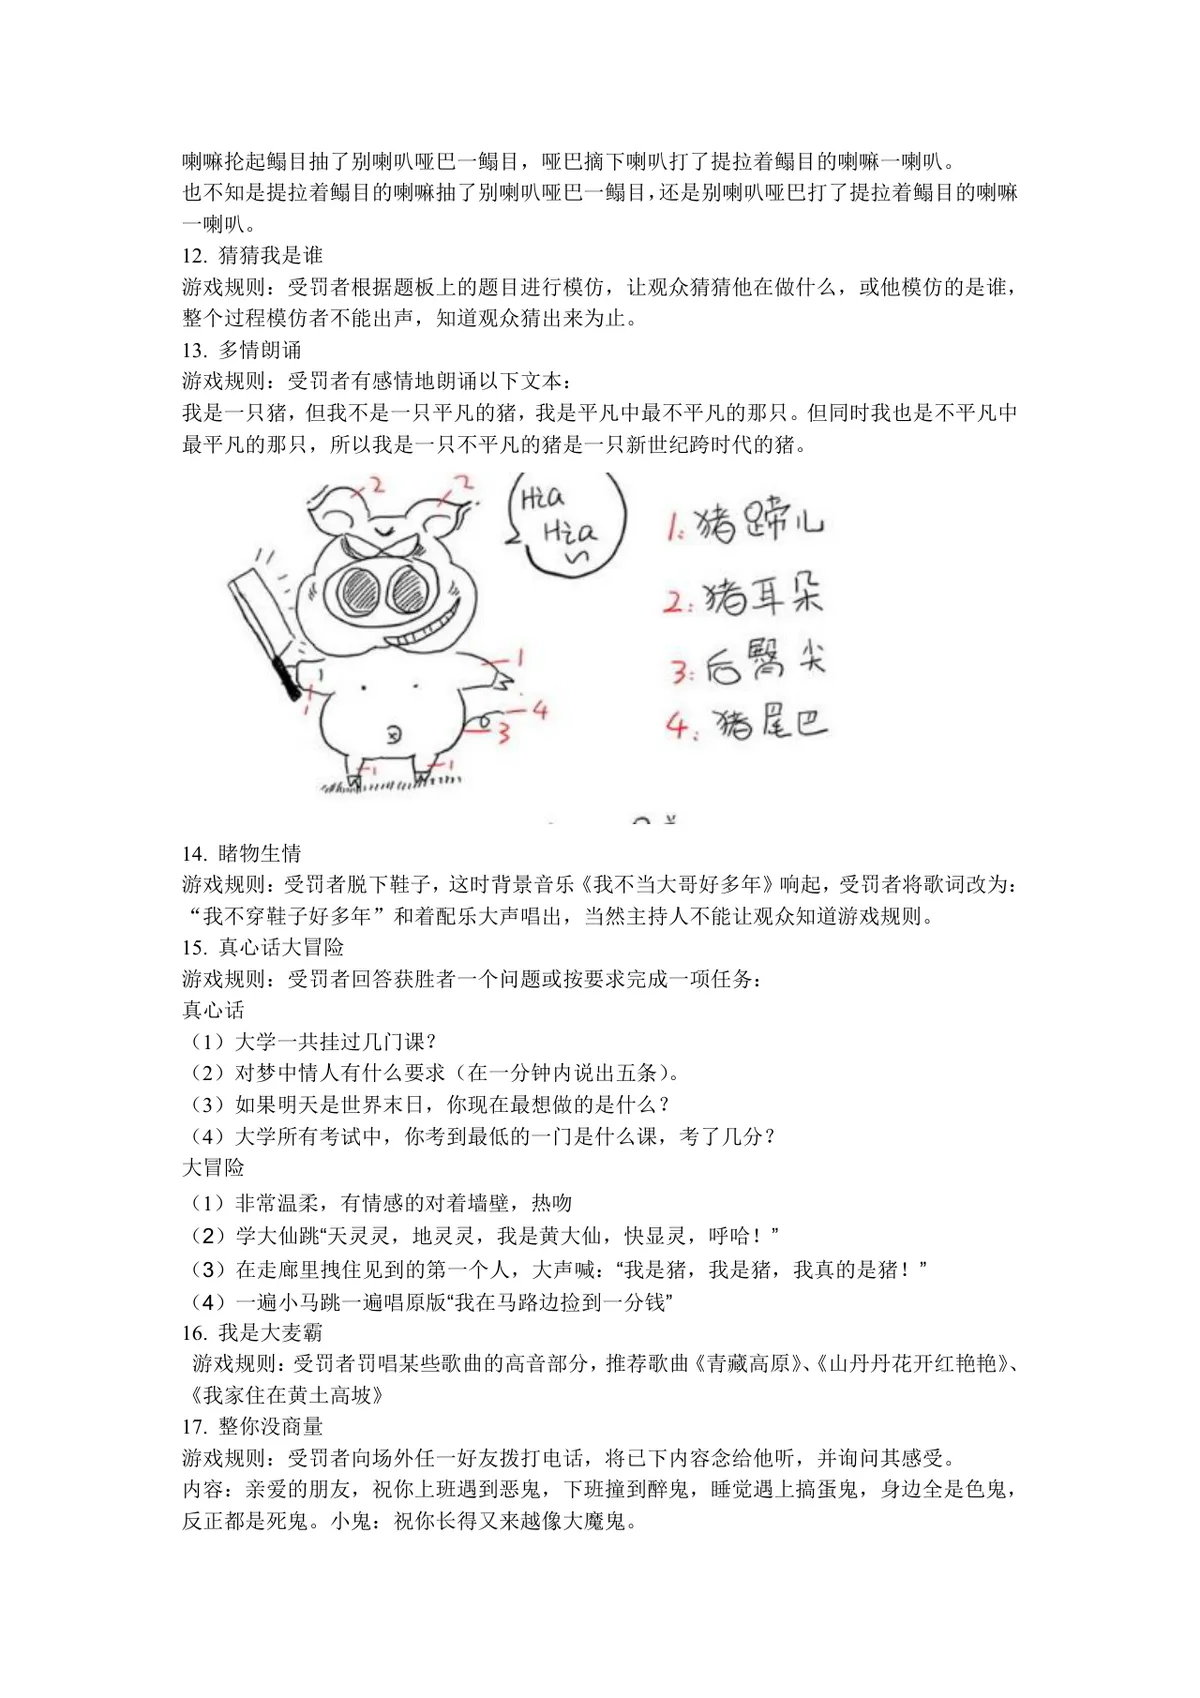 喇嘛抡起鳎目抽了别喇叭哑巴一鳎目，哑巴摘下喇叭打了提拉着鳎目的喇嘛一喇叭。
也不知是提拉着鳎目的喇嘛抽了别喇叭哑巴一鳎目，还是别喇叭哑巴打了提拉着鳎目的喇嘛
一喇叭。
12. 猜猜我是谁
游戏规则：受罚者根据题板上的题目进行模仿，让观众猜猜他在做什么，或他模仿的是谁，
整个过程模仿者不能出声，知道观众猜出来为止。
13. 多情朗诵
游戏规则：受罚者有感情地朗诵以下文本：
我是一只猪，但我不是一只平凡的猪，我是平凡中最不平凡的那只。但同时我也是不平凡中
最平凡的那只，所以我是一只不平凡的猪是一只新世纪跨时代的猪。
2 2
Hia
Hia
1：猪蹄儿
2：猪耳朵
3：后臀尖
4：猪尾巴
1
1
4
3
1 1
14. 睹物生情
游戏规则：受罚者脱下鞋子，这时背景音乐《我不当大哥好多年》响起，受罚者将歌词改为：
“我不穿鞋子好多年”和着配乐大声唱出，当然主持人不能让观众知道游戏规则。
15. 真心话大冒险
游戏规则：受罚者回答获胜者一个问题或按要求完成一项任务：
真心话
（1）大学一共挂过几门课？
（2）对梦中情人有什么要求（在一分钟内说出五条）。
（3）如果明天是世界末日，你现在最想做的是什么？
（4）大学所有考试中，你考到最低的一门是什么课，考了几分？
大冒险
（1）非常温柔，有情感的对着墙壁，热吻
（2）学大仙跳“天灵灵，地灵灵，我是黄大仙，快显灵，呼哈！”
（3）在走廊里拽住见到的第一个人，大声喊：“我是猪，我是猪，我真的是猪！”
（4）一遍小马跳一遍唱原版“我在马路边捡到一分钱”
16. 我是大麦霸
游戏规则：受罚者罚唱某些歌曲的高音部分，推荐歌曲《青藏高原》、《山丹丹花开红艳艳》、
《我家住在黄土高坡》
17. 整你没商量
游戏规则：受罚者向场外任一好友拨打电话，将已下内容念给他听，并询问其感受。
内容：亲爱的朋友，祝你上班遇到恶鬼，下班撞到醉鬼，睡觉遇上搞蛋鬼，身边全是色鬼，
反正都是死鬼。小鬼：祝你长得又来越像大魔鬼。